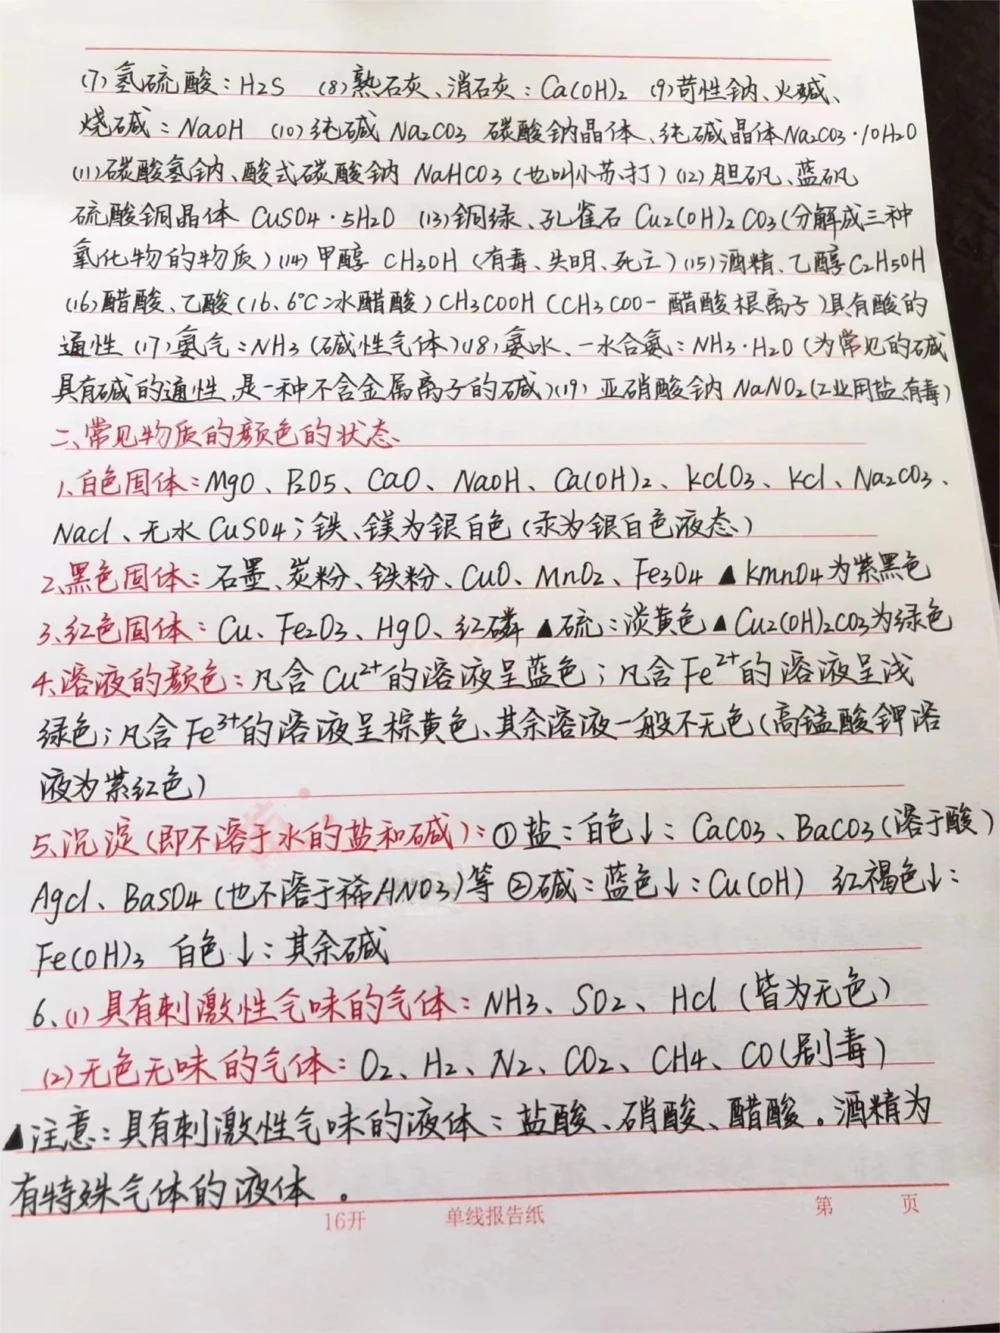 (7)氢硫酸:H2S (8)熟石灰、消石灰:Ca(OH)2 (9)苛性钠、火碱、
烧碱:NaOH (10)纯碱 Na2CO3 碳酸钠晶体、纯碱晶体Na2CO3·10H2O
(11)碳酸氢钠、酸式碳酸钠 NaHCO3(也叫小苏打)(12)胆矾、蓝矾
硫酸铜晶体 CuSO4·5H2O (13)铜绿、孔雀石 Cu2(OH)2CO3(分解成三种
氧化物的物质)(14)甲醇 CH3OH (有毒、失明、死亡)(15)酒精、乙醇C2H5OH
(16)醋酸、乙酸(16、6℃冰醋酸)CH3COOH (CH3COO- 醋酸根离子)具有酸的
通性 (17)氨气:NH3 (碱性气体)(18)氨水、一水合氨:NH3·H2O (为常见的碱
具有碱的通性,是一种不含金属离子的碱)(19) 亚硝酸钠 NaNO2(工业用盐,有毒)
二、常见物质的颜色的状态
1、白色固体:MgO、P2O5、CaO、NaOH、Ca(OH)2、kclO3、kcl、Na2CO3、
Nacl、无水CuSO4;铁、镁为银白色(汞为银白色液态)
2、黑色固体:石墨、炭粉、铁粉、CuO、MnO2、Fe3O4 ▲kmnO4为紫黑色
3、红色固体:Cu、Fe2O3、HgO、红磷 ▲硫:淡黄色▲Cu2(OH)2CO3为绿色
4、溶液的颜色:凡含Cu2+的溶液呈蓝色;凡含Fe2+的溶液呈浅
绿色;凡含Fe3+的溶液呈棕黄色、其余溶液一般不无色(高锰酸钾溶
液为紫红色)
5、沉淀(即不溶于水的盐和碱):①盐:白色↓:CaCO3、BaCO3(溶于酸)
Agcl、BaSO4(也不溶于稀HNO3)等②碱:蓝色↓:Cu(OH) 红褐色↓:
Fe(OH)3 白色↓:其余碱
6、(1)具有刺激性气味的气体:NH3、SO2、Hcl(皆为无色)
(2)无色无味的气体:O2、H2、N2、CO2、CH4、CO(剧毒)
▲注意:具有刺激性气味的液体:盐酸、硝酸、醋酸。酒精为
有特殊气体的液体。
16开 单线报告纸 第 页